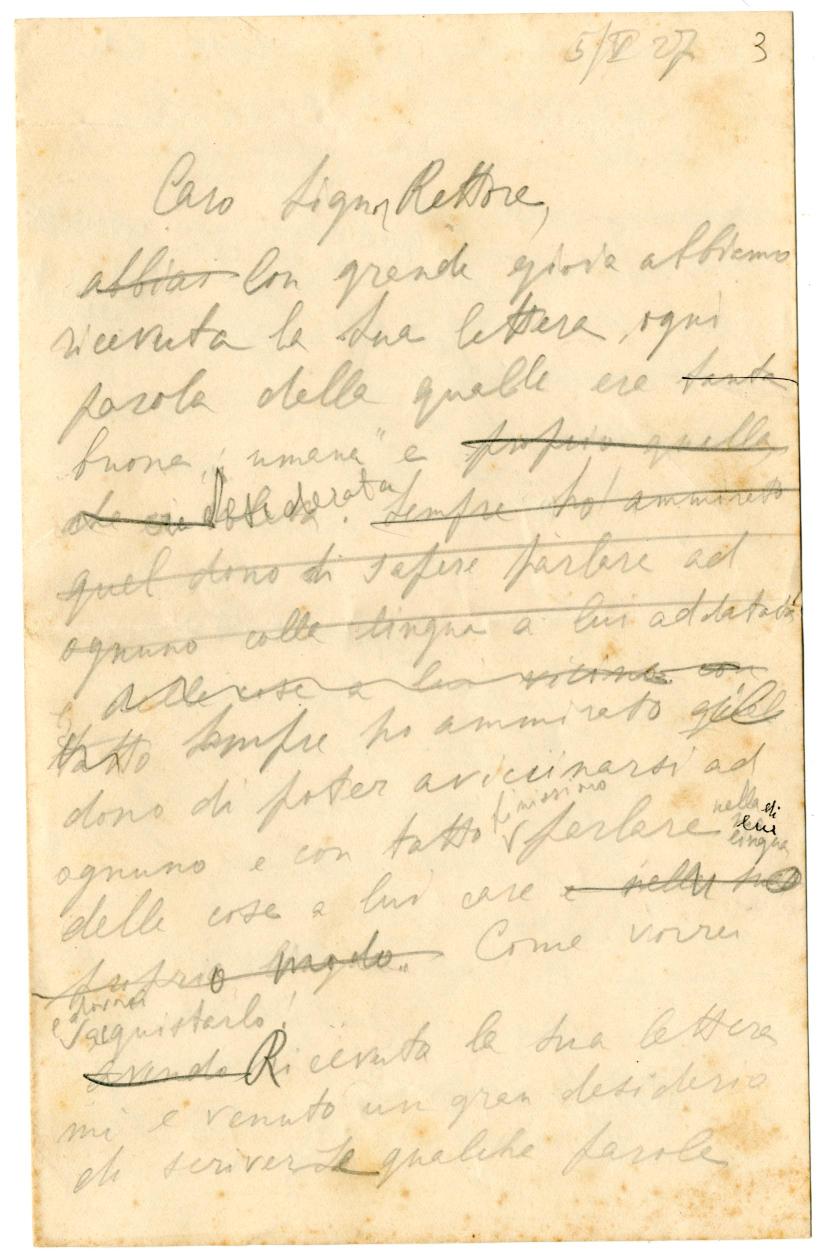 5/V 27 3
Caro Signor Rettore,
abbiar Con grande gioia abbiamo
ricevuta la Sua lettera, ogni
parola della qualle ere tanta
buona, "umana" e proprio quella
che desiderata. Sempre ho ammirato
quel dono di sapere parlare ad
ognuno colla lingua a lui addatata
delle cose a lui vicine con
tatto Sempre ho ammirato quel
dono di poter aviccinarsi ad
ognuno e con tatto finissimo parlare nella di lui lingua
delle cose a lui care e nella suo
proprio modo. Come vorrei
acquistarlo!
avendo Ricevuta la Sua lettera
mi e venuto un gran desiderio
di scriverLe qualche parole